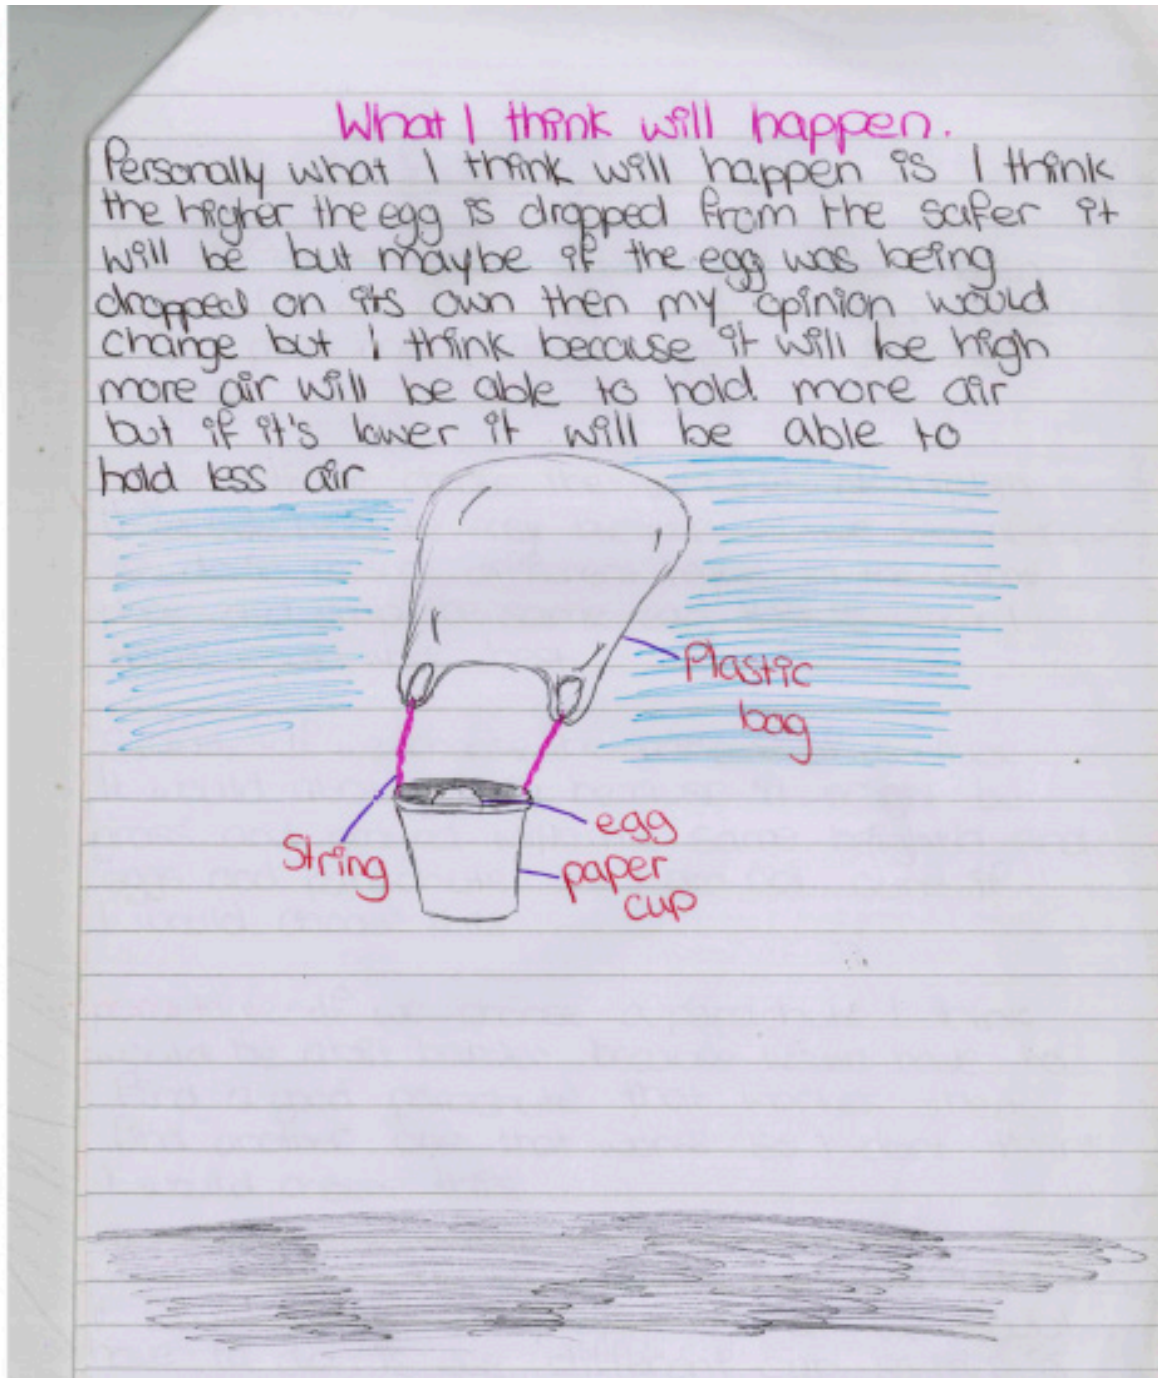 What I think will happen.
Personally what I think will happen is I think
the higher the egg is dropped from the safer it
will be but maybe if the egg was being
dropped on its own then my opinion would
change but i think because it will be high
more air will be able to hold more air
but if it's lower it will be able to
hold less air
Plastic
bag
egg
String
paper
cup